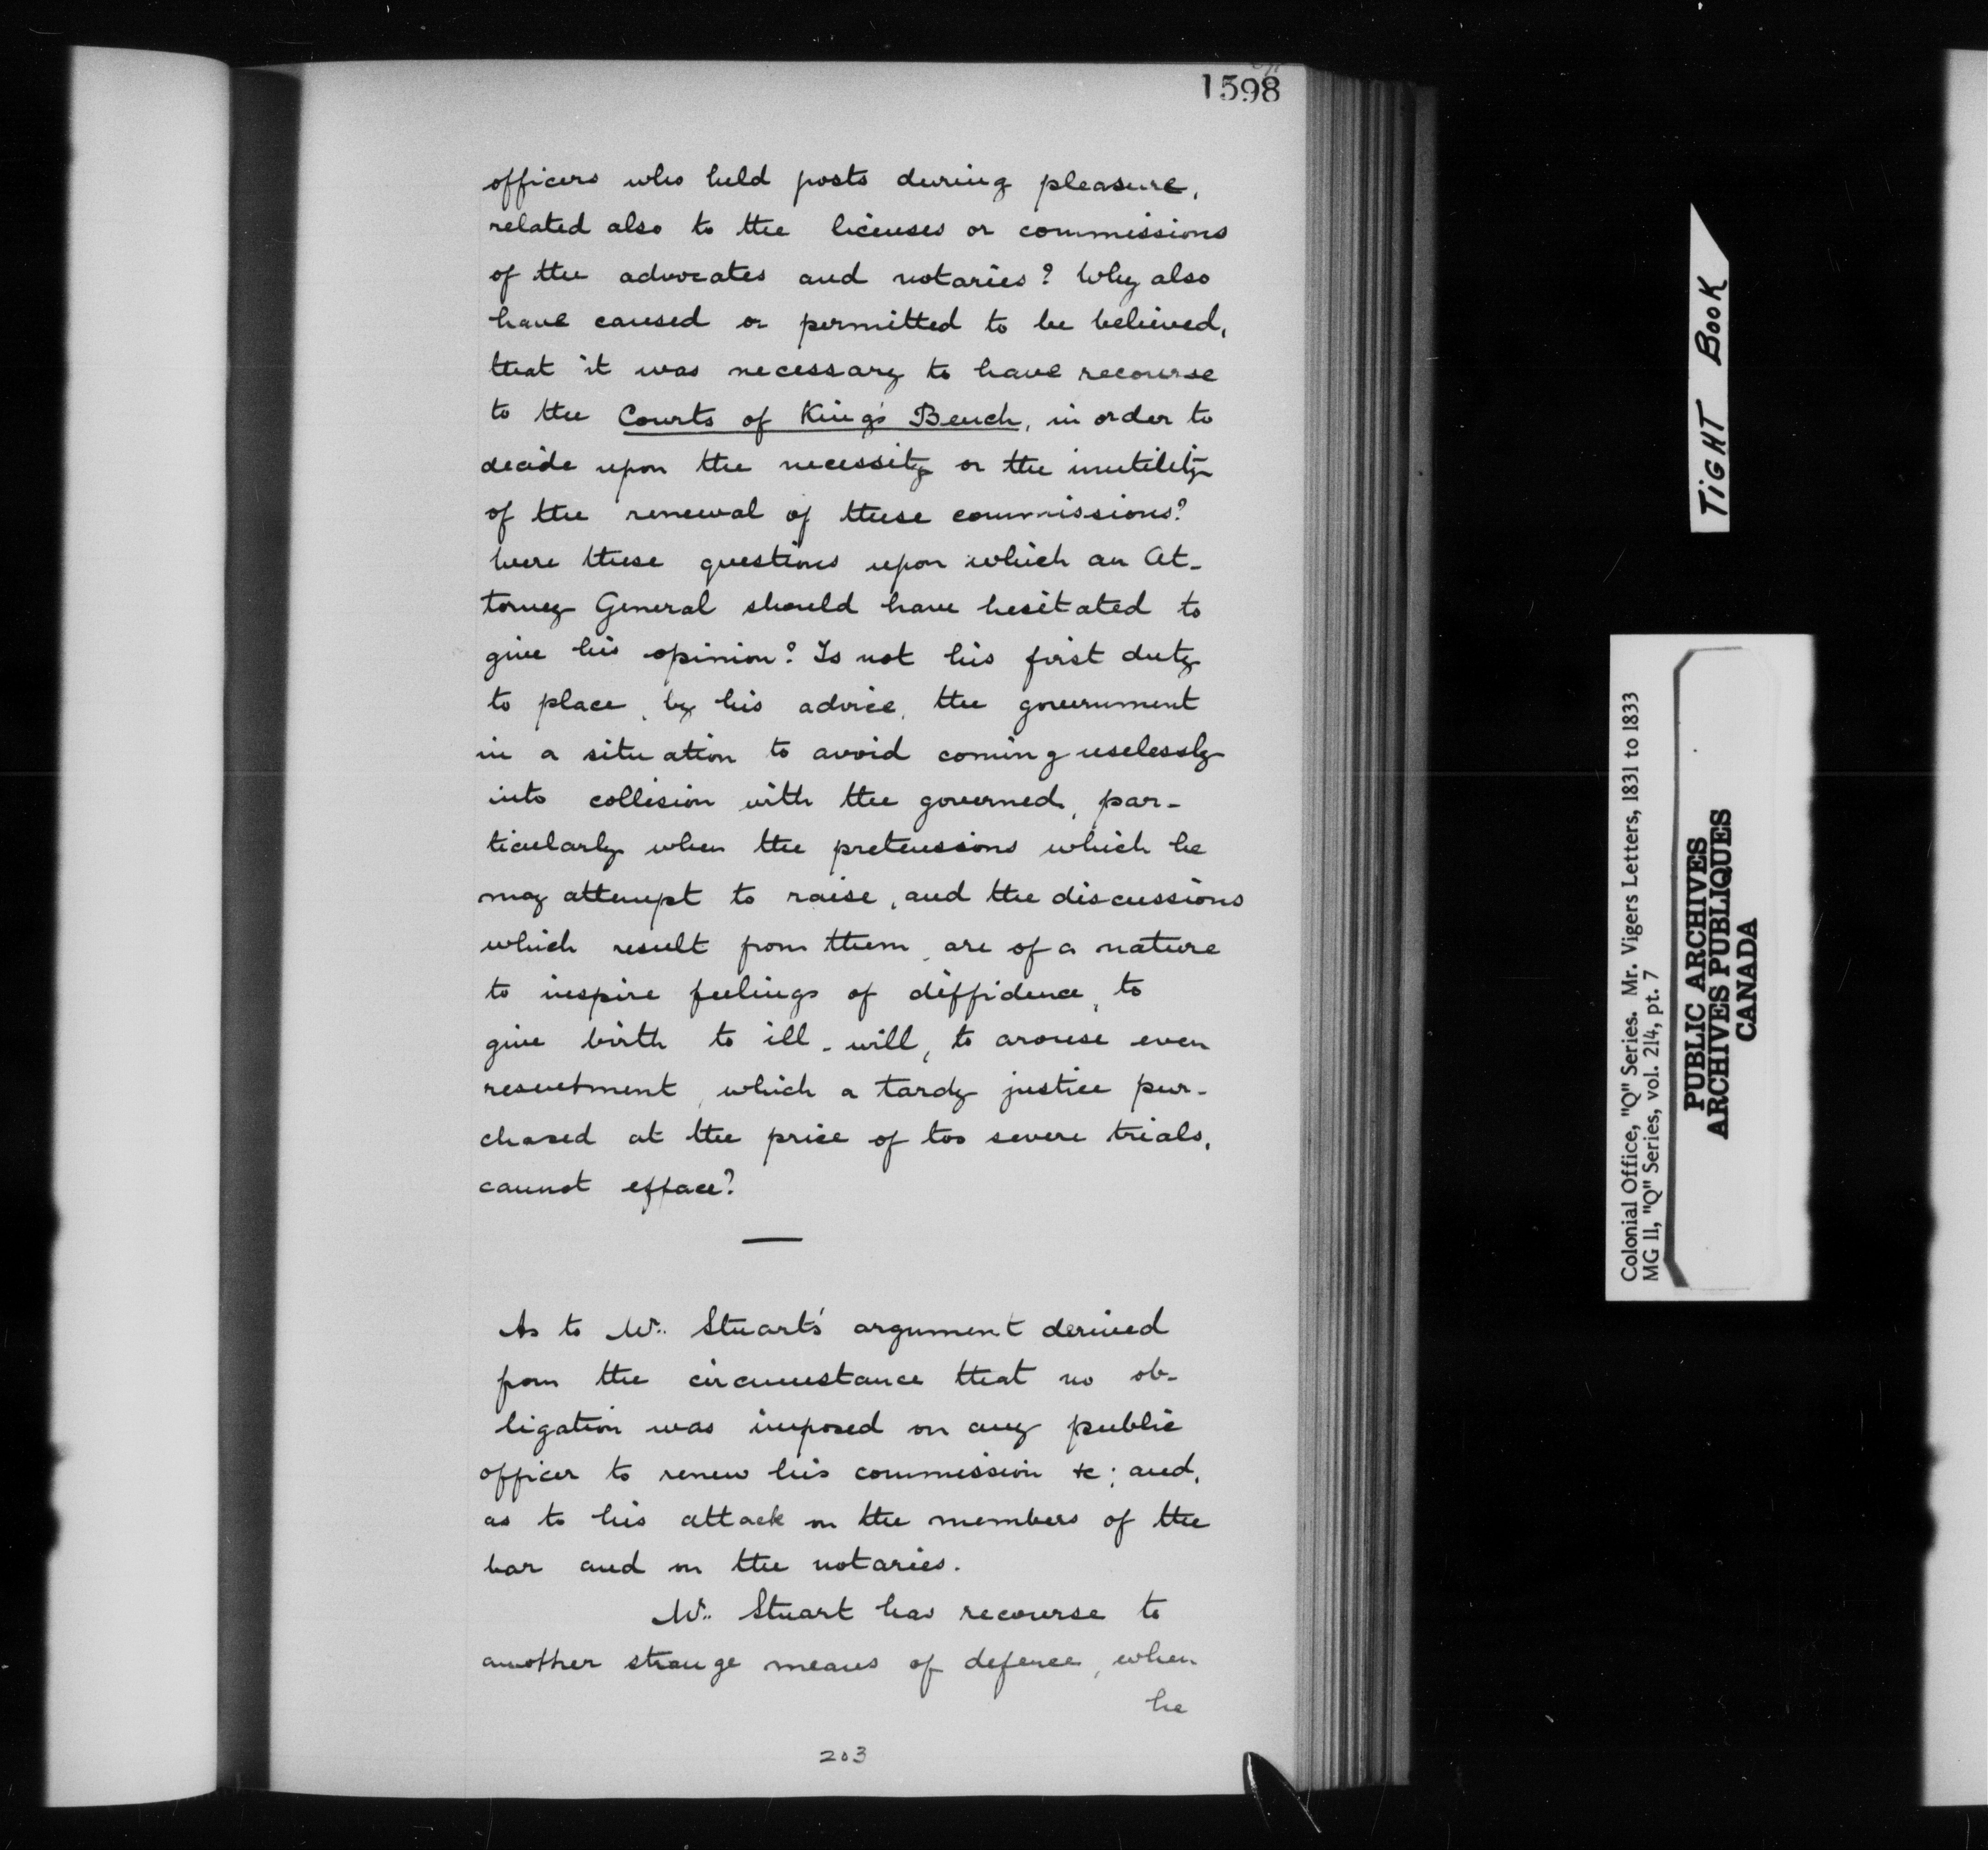 1598
officers who held posts during pleasure,
related also to the licenses or commissions
of the advocates and notaries? Why also
have caused or permitted to be believed,
that it was necessary to have recourse
to the Courts of King's Bench, in order to
decide upon the necessity or the inutility
of the renewal of these commissions?
Were these questions upon which an At-
torney General should have hesitated to
give his opinion? Is not his first duty
to place, by his advice, the government
in a situation to avoid coming uselessly
into collision with the governed, par-
ticularly when the pretensions which he
may attempt to raise, and the discussions
which result from them, are of a nature
to inspire feelings of diffidence, to
give birth to ill-will, to arouse even
resentment, which a tardy justice pur-
chased at the price of too severe trials,
cannot efface?
As to Mr. Stuart's argument derived
from the circumstance that no ob-
ligation was imposed on any public
officer to renew his commission &c; and,
as to his attack on the members of the
bar and on the notaries.
Mr. Stuart has recourse to
another strange means of defence, when
he
203
TIGHT BOOK
Colonial Office, "Q" Series. Mr. Vigers Letters, 1831 to 1833
MG 11, "Q" Series, vol. 214, pt. 7
PUBLIC ARCHIVES
ARCHIVES PUBLIQUES
CANADA